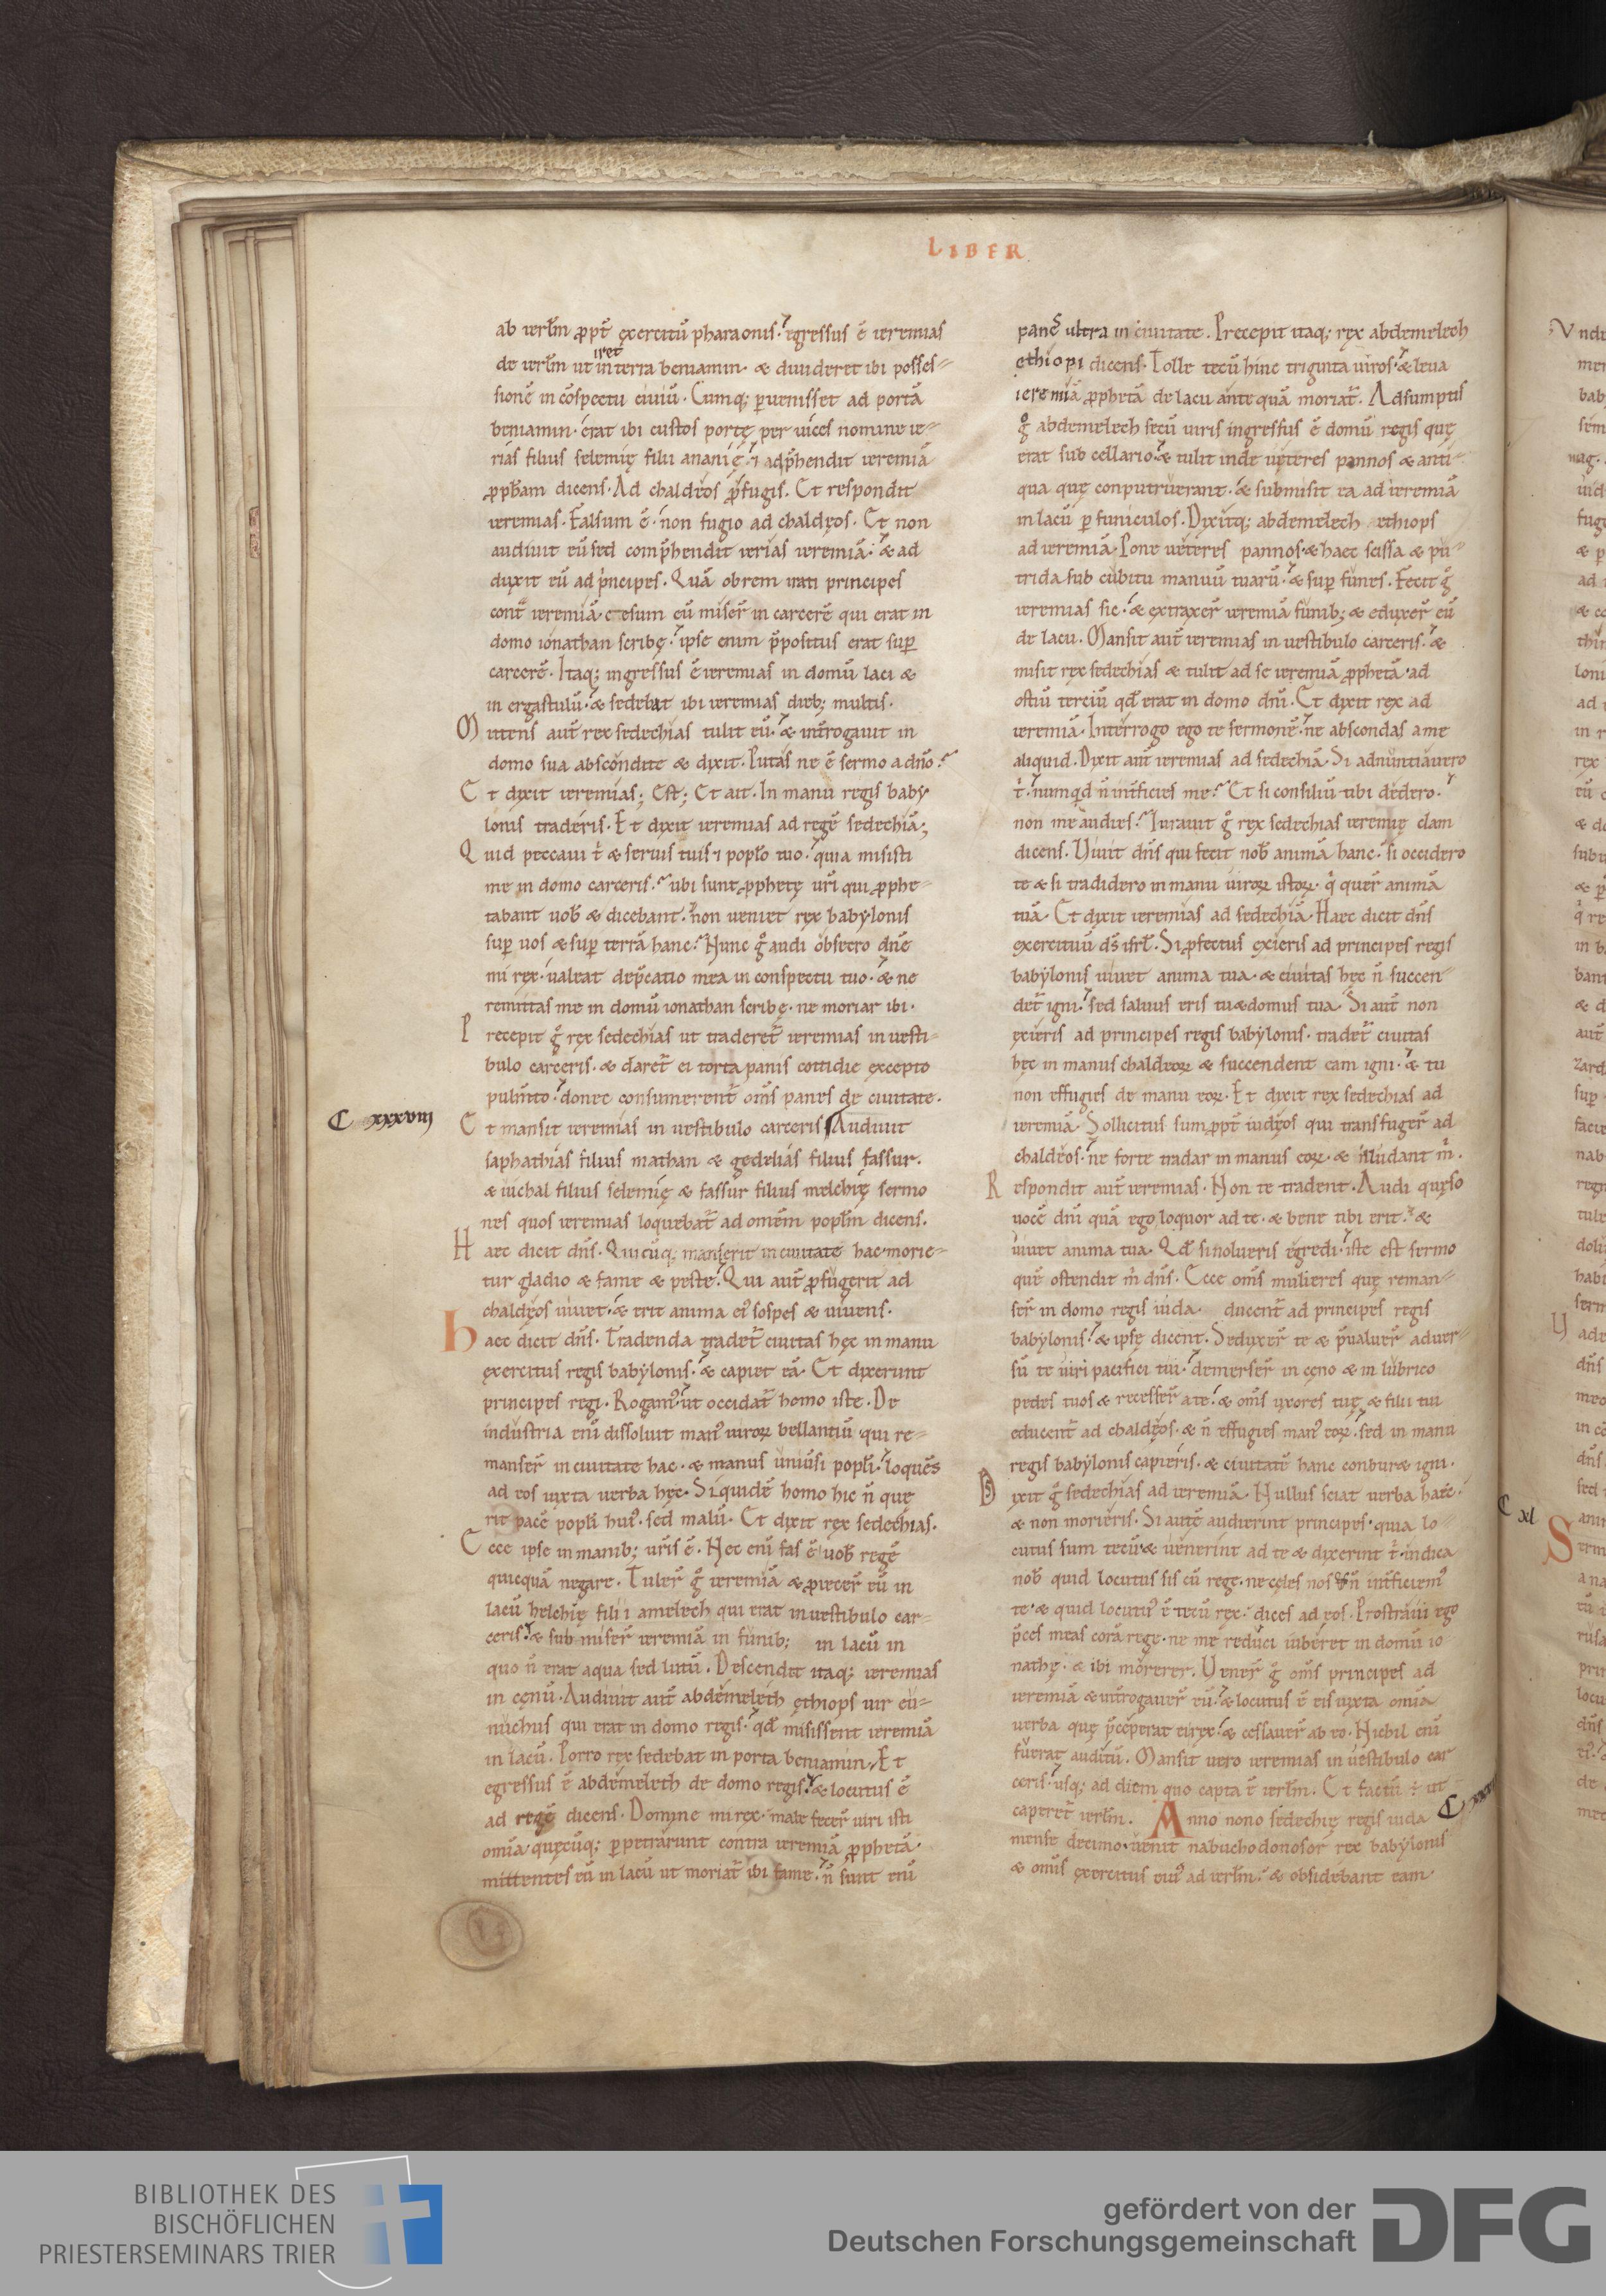 LIBER
ab ierl̄m ꝓpt̄ exercitū pharaonis. egressus ē ieremias
de ierl̄m ut iret in terra beniamin. & diuideret ibi posses-
sionē in cōspectu ciuiū. Cumq; peruenisset ad portā
beniamin. erat ibi custos portę per uices nomine ie-
rias filius selemię filii ananię. ⁊ adp̄hendit ieremiā
ꝓph̄am dicens. Ad chaldeos ꝓfugis. Et respondit
ieremias. Falsum ē. non fugio ad chaldęos. Et non
audiuit eū sed comp̄hendit ierias ieremiā. & ad
duxit eū ad principes. Quā obrem irati principes
cont̄ ieremiā. cesum eū miser̄ in carcerē qui erat in
domo ionathan scribę. ipse enim p̄positus erat sup̄
carcerē. Itaq; ingressus ē ieremias in domū laci &
in ergastulū. & sedebat ibi ieremias dieb; multis.
Mittens aut̄ rex sedechias tulit eū. & int̄rogauit in
domo sua abscondite & dixit. Putas ne ē sermo a dn̄o.
Et dixit ieremias; Est; Et ait. In manu regis baby
lonis traderis. Et dixit ieremias ad regē sedechiā;
Quid peccaui t̄ & seruis tuis ⁊ popl̄o tuo. quia misisti
me in domo carceris. ubi sunt ꝓphetę ur̄i qui ꝓphe-
tabant uob̄ & dicebant. non ueniet rex babylonis
sup̄ uos & sup̄ terrā hanc. Nunc g̊ audi obsecro dn̄e
mi rex. ualeat dep̄catio mea in conspectu tuo. & ne
remittas me in domū ionathan scribę. ne moriar ibi.
Precepit g̊ rex sedechias ut traderet̄ ieremias in uesti-
bulo carceris. & daret̄ ei torta panis cottidie excepto
pulmto. donec consumerent̄ om̄s panes de ciuitate.
C xxxviij
Et mansit ieremias in uestibulo carceris Audiuit
saphathias filius mathan & gedelias filius fassur.
& iuchal filius selemię & fassur filius melchię sermo
nes quos ieremias loquebat̄ ad omēm popl̄m dicens.
Haec dicit dn̄s. Quicūq; manserit in ciuitate hac. morie-
tur gladio & fame & peste. Qui aut̄ ꝓfugerit ad
chaldęos uiuet. & erit anima ei' sospes & uiuens.
Haec dicit dn̄s. Tradenda tradet̄ ciuitas hęc in manu
exercitus regis babylonis. & capiet eā. Et dixerunt
principes regi. Rogam'. ut occidat̄ homo iste. De
industria enī dissoluit man' uiroꝝ bellantiū qui re-
manser̄ in ciuitate hac. & manus uniūsi popl̄i. loquēs
ad eos iuxta uerba hęc. Siquidē homo hic n̄ que
rit pacē popl̄i hui'. sed malū. Et dixit rex sedechias.
Ecce ipse in manib; ur̄is ē. Nec enī fas ē uob̄ regē
quicquā negare. Tuler̄ g̊ ieremiā & ꝓiecer̄ eū in
lacū helchię filii amelech qui erat in uestibulo car-
ceris. & submiser̄ ieremiā in funib; in lacū in
quo n̄ erat aqua sed lutū. Descendit itaq; ieremias
in cęnū. Audiuit aut̄ abdemelech ęthiops uir eu-
nuchus qui erat in domo regis. qd̄ misissent ieremiā
in lacū. Porro rex sedebat in porta beniamin. Et
egressus ē abdemelech de domo regis. & locutus ē
ad regē dicens. Domine mi rex. male fecer̄ uiri isti
omīa quęcūq; ꝑpetrarunt contra ieremiā ꝓphetā.
mittentes eū in lacū ut moriat̄ ibi fame. n̄ sunt enī
panes ultra in ciuitate. Precepit itaq; rex abdemelech
ethiopi dicens. Tolle tecū hinc triginta uiros. & leua
ieremiā ꝓphetā de lacu ante quā moriat̄. Adsumptis
g̊ abdemelech secū uiris ingressus ē domū regis quę
erat sub cellario. & tulit inde ueteres pannos & anti-
qua quę conputruerant. & submisit ea ad ieremiā
in lacū ꝑ funiculos. Dixitq; abdemelech ethiops
ad ieremiā. Pone ueteres pannos. & haec scissa & pu-
trida sub cubitu manuū tuarū. & sup̄ funes. Fecit g̊
ieremias sic. & extraxer̄ ieremiā funib; & eduxer̄ eū
de lacu. Mansit aut̄ ieremias in uestibulo carceris. &
misit rex sedechias & tulit ad se ieremiā ꝓphetā. ad
ostiū terciū qd̄ erat in domo dn̄i. Et dixit rex ad
ieremiā. Interrogo ego te sermonē. ne abscondas a me
aliquid. Dixit aut̄ ieremias ad sedechiā. Si adnuntiauero
t̄. numqd n̄ int̄ficies me. Et si consiliū tibi dedero.
non me audies. Iurauit g̊ rex sedechias ieremię clam
dicens. Uiuit dn̄s qui fecit nob̄ animā hanc. si occidero
te & si tradidero in manu uiroꝝ istoꝝ. q̄ quer̄ animā
tuā. Et dixit ieremias ad sedechiā. Haec dicit dn̄s
exercituū ds̄ isrl̄. Si ꝓfectus exieris ad principes regis
babylonis uiuet anima tua. & ciuitas hęc n̄ succen-
det̄ igni. sed saluus eris tu & domus tua. Si aut̄ non
exieris ad principes regis babylonis. tradet̄ ciuitas
hęc in manus chaldeoꝝ & succendent eam igni. & tu
non effugies de manu eoꝝ. Et dixit rex sedechias ad
ieremiā. Sollicitus sum ꝓpt̄ iudęos qui transfuger̄ ad
chaldęos. ne forte tradar in manus eoꝝ. & illudant m̄.
Respondit aut̄ ieremias. Non te tradent. Audi quęso
uocē dn̄i quā ego loquor ad te. & bene tibi erit. &
uiuet anima tua. Qd̄ si nolueris egredi. iste est sermo
quē ostendit m̄ dn̄s. Ecce om̄s mulieres quę reman-
ser̄ in domo regis iuda ducent̄ ad principes regis
babylonis. & ipsę dicent. Seduxer̄ te & p̄ualuer̄ aduer-
sū te uiri pacifici tui. demerser̄ in cęno & in lubrico
pedes tuos & recesser̄ a te. & om̄s uxores tuę & filii tui
educent̄ ad chaldęos. & n̄ effugies man' eoꝝ. sed in manu
regis babylonis capieris. & ciuitatē hanc conburet igni.
Dixit g̊ sedechias ad ieremiā. Nullus sciat uerba haec.
& non morieris. Si autē audierint principes. quia lo-
cutus sum tecū. & uenerint ad te & dixerint t̄. indica
nob̄ quid locutus sis cū rege. ne celes nos & n̄ int̄ficiem'
te. & quid locut' ē tecū rex. dices ad eos. Prostraui ego
p̄ces meas corā rege. ne me reduci iuberet in domū io-
nathę. & ibi morerer. Uener̄ g̊ om̄s principes ad
ieremiā & int̄rogauer̄ eū. & locutus ē eis iuxta omīa
uerba quę p̄ceperat ei rex. & cessauer̄ ab eo. Nichil enī
fuerat auditū. Mansit uero ieremias in uestibulo car
ceris. usq; ad diem quo capta ē ierl̄m. Et factū ÷ ut
caperet̄ ierl̄m. Anno nono sedechię regis iuda
mense decimo. uenit nabuchodonosor rex babylonis
& om̄s exercitus eius ad ierl̄m. & obsidebant eam
C xl
BIBLIOTHEK DES
BISCHÖFLICHEN
PRIESTERSEMINARS TRIER
gefördert von der
Deutschen Forschungsgemeinschaft
DFG